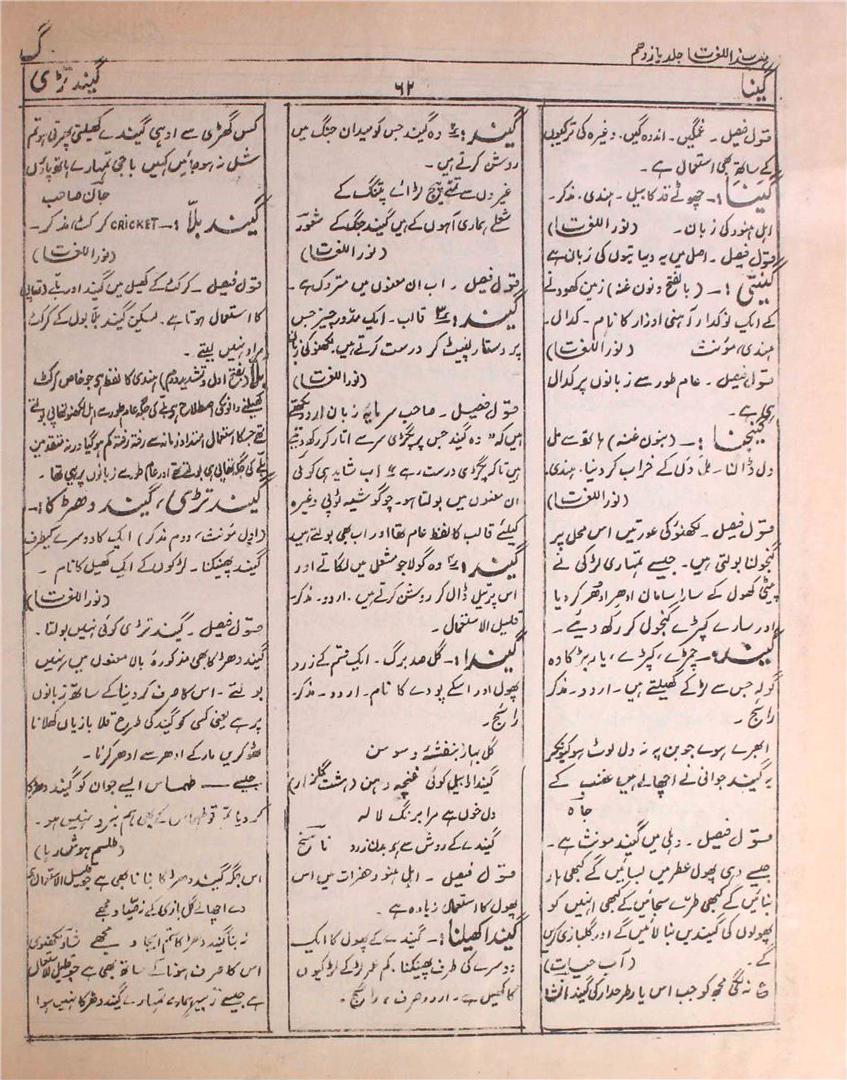 مہذب اللغات جلد یازدھم
گ
گینا
۶۲
گیند تڑی
قول فیصل ۔ غمگیں ۔ اندوہ گیں ۔ وغیرہ کی ترکیبوں
کے ساتھ بھی استعمال ہے ۔
گَینا :۔ چھوٹے قد کا بیل ۔ ہندی ۔ مذکر ۔
اہل ہنود کی زبان ۔ (نور اللغت)
قول فیصل ۔ اصل میں یہ دیہاتیوں کی زبان ہے
گینتی :۔ (بالفتح و نون غنہ) زمین کھودنے
کے ایک نوکدار آہنی اوزار کا نام ۔ کدال ۔
ہندی، مؤنث (نور اللغت)
قول فیصل ۔ عام طور سے زبانوں پر کدال
ہی ہے ۔
گینجنا :۔ (بنون غنہ) ہاتھ سے مل
دل ڈالنا ۔ مل دَل کے خراب کر دینا، ہندی
(نور اللغت)
قول فیصل ۔ لکھنؤ کی عورتیں اس محل پر
گنجولنا بولتی ہیں ۔ جیسے تمہاری لڑکی نے
پیٹی کھول کے سارا سامان ادھر ادھر کر دیا
اور سارے کپڑے گنجول کر رکھ دیئے ۔
گیند :۔ چمڑے، کپڑے، یا ربڑ کا وہ
گولہ جس سے لڑکے کھیلتے ہیں ۔ اردو ۔ مذکر
رائج ۔
ابھرے ہوے جوبن پہ نہ دل لوٹ ہو کیونکر
یہ گیند جوانی نے اچھالے ہیں غضب کے
جاہ
قول فیصل ۔ دہلی میں گیند مؤنث ہے ۔
جیسے وہی پھول عطر میں بسائیں گے کبھی ہار
بنائیں گے کبھی طرے سجائیں گے کبھی انہیں کو
پھولوں کی گیندیں بنا لائیں گے اور گلبازی کریں
گے ۔ (آب حیات)
ع نہ لگی مجھ کو جب اس یار طرحدار کی گیند انشا
گیند :۲؎ وہ گیند جس کو میدان جنگ میں
روشن کرتے ہیں ۔
غیروں سے تمنے پیچ لڑائے پتنگ کے
شعلے ہماری آہوں کے ہیں گیند جنگ کے شعور
(نور اللغت)
قول فیصل ۔ اب ان معنوں میں متروک ہے ۔
گیند :۳؎ قالب ۔ ایک مدوّر چیز جس
پر دستار لپیٹ کر درست کرتے ہیں لکھنؤ کی زبان
(نور اللغت)
قول فیصل ۔ صاحب سرمایہ زبان اردو لکھتے
ہیں کہ" وہ گیند جس پر پگڑی سر سے اتار کر رکھ دیتے
ہیں تاکہ پگڑی درست رہے" اب شاید ہی کوئی
ان معنوں میں بولتا ہو ۔ چوگوشیہ ٹوپی وغیرہ
کیلئے قالب کا لفظ عام تھا اور اب بھی بولتے ہیں
گیند :۴؎ وہ گولا جو مشعل میں لگاتے اور
اس پر تیل ڈال کر روشن کرتے ہیں ۔ اردو ۔ مذکر
قلیل الاستعمال ۔
گیندا :۔ گل صد برگ ۔ ایک قسم کے زرد
پھول اور اسکے پودے کا نام ۔ اردو ۔ مذکر
رائج ۔
گل پیاز بنفشہ و سوسن
گیندا بیل کوئی غنچہ دہن (ہشت گلزار)
دل خوں ہے مرا برنگ لالہ
گیندے کے روش سے ہے بدن زرد ناسخ
قول فیصل ۔ اہل ہنود حضرات میں اس
پھول کا استعمال زیادہ ہے ۔
گیندا کھیلنا :۔ گیندے کے پھول کا ایک
دوسرے کی طرف پھینکنا ۔ کم عمر لڑکے لڑکیوں
کا کھیل ہے ۔ اردو صرف، رائج ۔
کس گھڑی سے اوہی گیند سے کھیلتی پھرتی ہو تم
شل نہ ہو جائیں کہیں باجی تمہارے ہاتھ پاؤں
جان صاحب
گیند بلّا :۔ CRICKET کرکٹ، مذکر ۔
(نور اللغت)
قول فیصل ۔ کرکٹ کے کھیل میں گیند اور بلّے (تھاپی)
کا استعمال ہوتا ہے ۔ لیکن گیند بلّا بول کے کرکٹ
مراد نہیں لیتے ۔
بلّا (بفتح اول و تشدید دوم) ہندی کا لفظ ہے جو خاص کرکٹ
کھیلنے والوں کی اصطلاح ہے بلّے کی جگہ عام طور سے اہل لکھنؤ تھاپی بولتے
تھے جسکا استعمال امتداد زمانہ سے رفتہ رفتہ کم ہو گیا ورنہ متقدمین
بلّے کی جگہ تھاپی ہی بولتے تھے اور عام طور سے زبانوں پر یہی تھا ۔
گیند تڑی، گیند دھڑکا :۔
(اول مؤنث، دوم مذکر) ایک کا دوسرے کیطرف
گیند پھینکنا ۔ لڑکوں کے ایک کھیل کا نام ۔
(نور اللغت)
قول فیصل ۔ گیند تڑی کوئی نہیں بولتا ۔
گیند دھڑکا بھی مذکورۂ بالا معنوں میں نہیں
بولتے ۔ اس کا صرف کر دینا کے ساتھ زبانوں
پر ہے یعنی کسی کو گیند کی طرح قلابازیاں کھلانا
ٹھوکریں مار کے ادھر سے ادھر کرنا ۔
جیسے —— طہماس ایسے جوان کو گیند دھڑکا
کر دیا تم تو طہماس کے بھی ہم نبرد نہیں ہو ۔
(طلسم ہوشربا)
اس جگہ گیند دھڑکا بنانا بھی ہے جو قلیل الاستعمال ہے
نہ بنا گیند دھڑکا تم اپنا و مجھے شاد لکھنوی
اس کا صرف ہونا کے ساتھ بھی ہے جو قلیل الاستعمال
ہے جیسے زبیر ہمارے تمہارے گیند دھڑکا نہیں ہوا